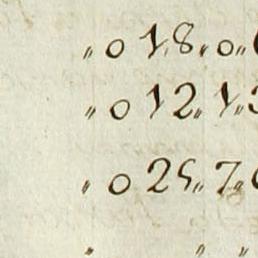 〃 0 18 〃 0 〃
〃 0 12 〃 1 〃
〃 0 25 〃 7 〃
〃 〃 〃